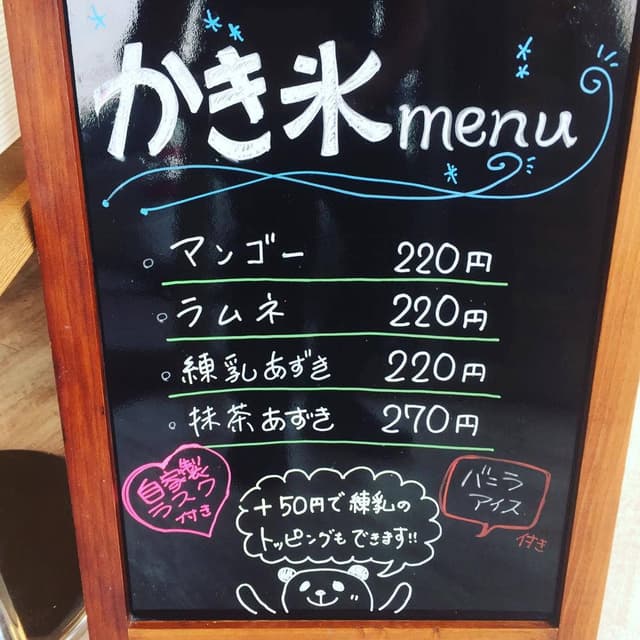 かき氷menu
。マンゴー 220円
。ラムネ 220円
。練乳あずき 220円
。抹茶あずき 270円
自家製
ラスク
付き
+50円で練乳の
トッピングもできます!!
バニラ
アイス
付き